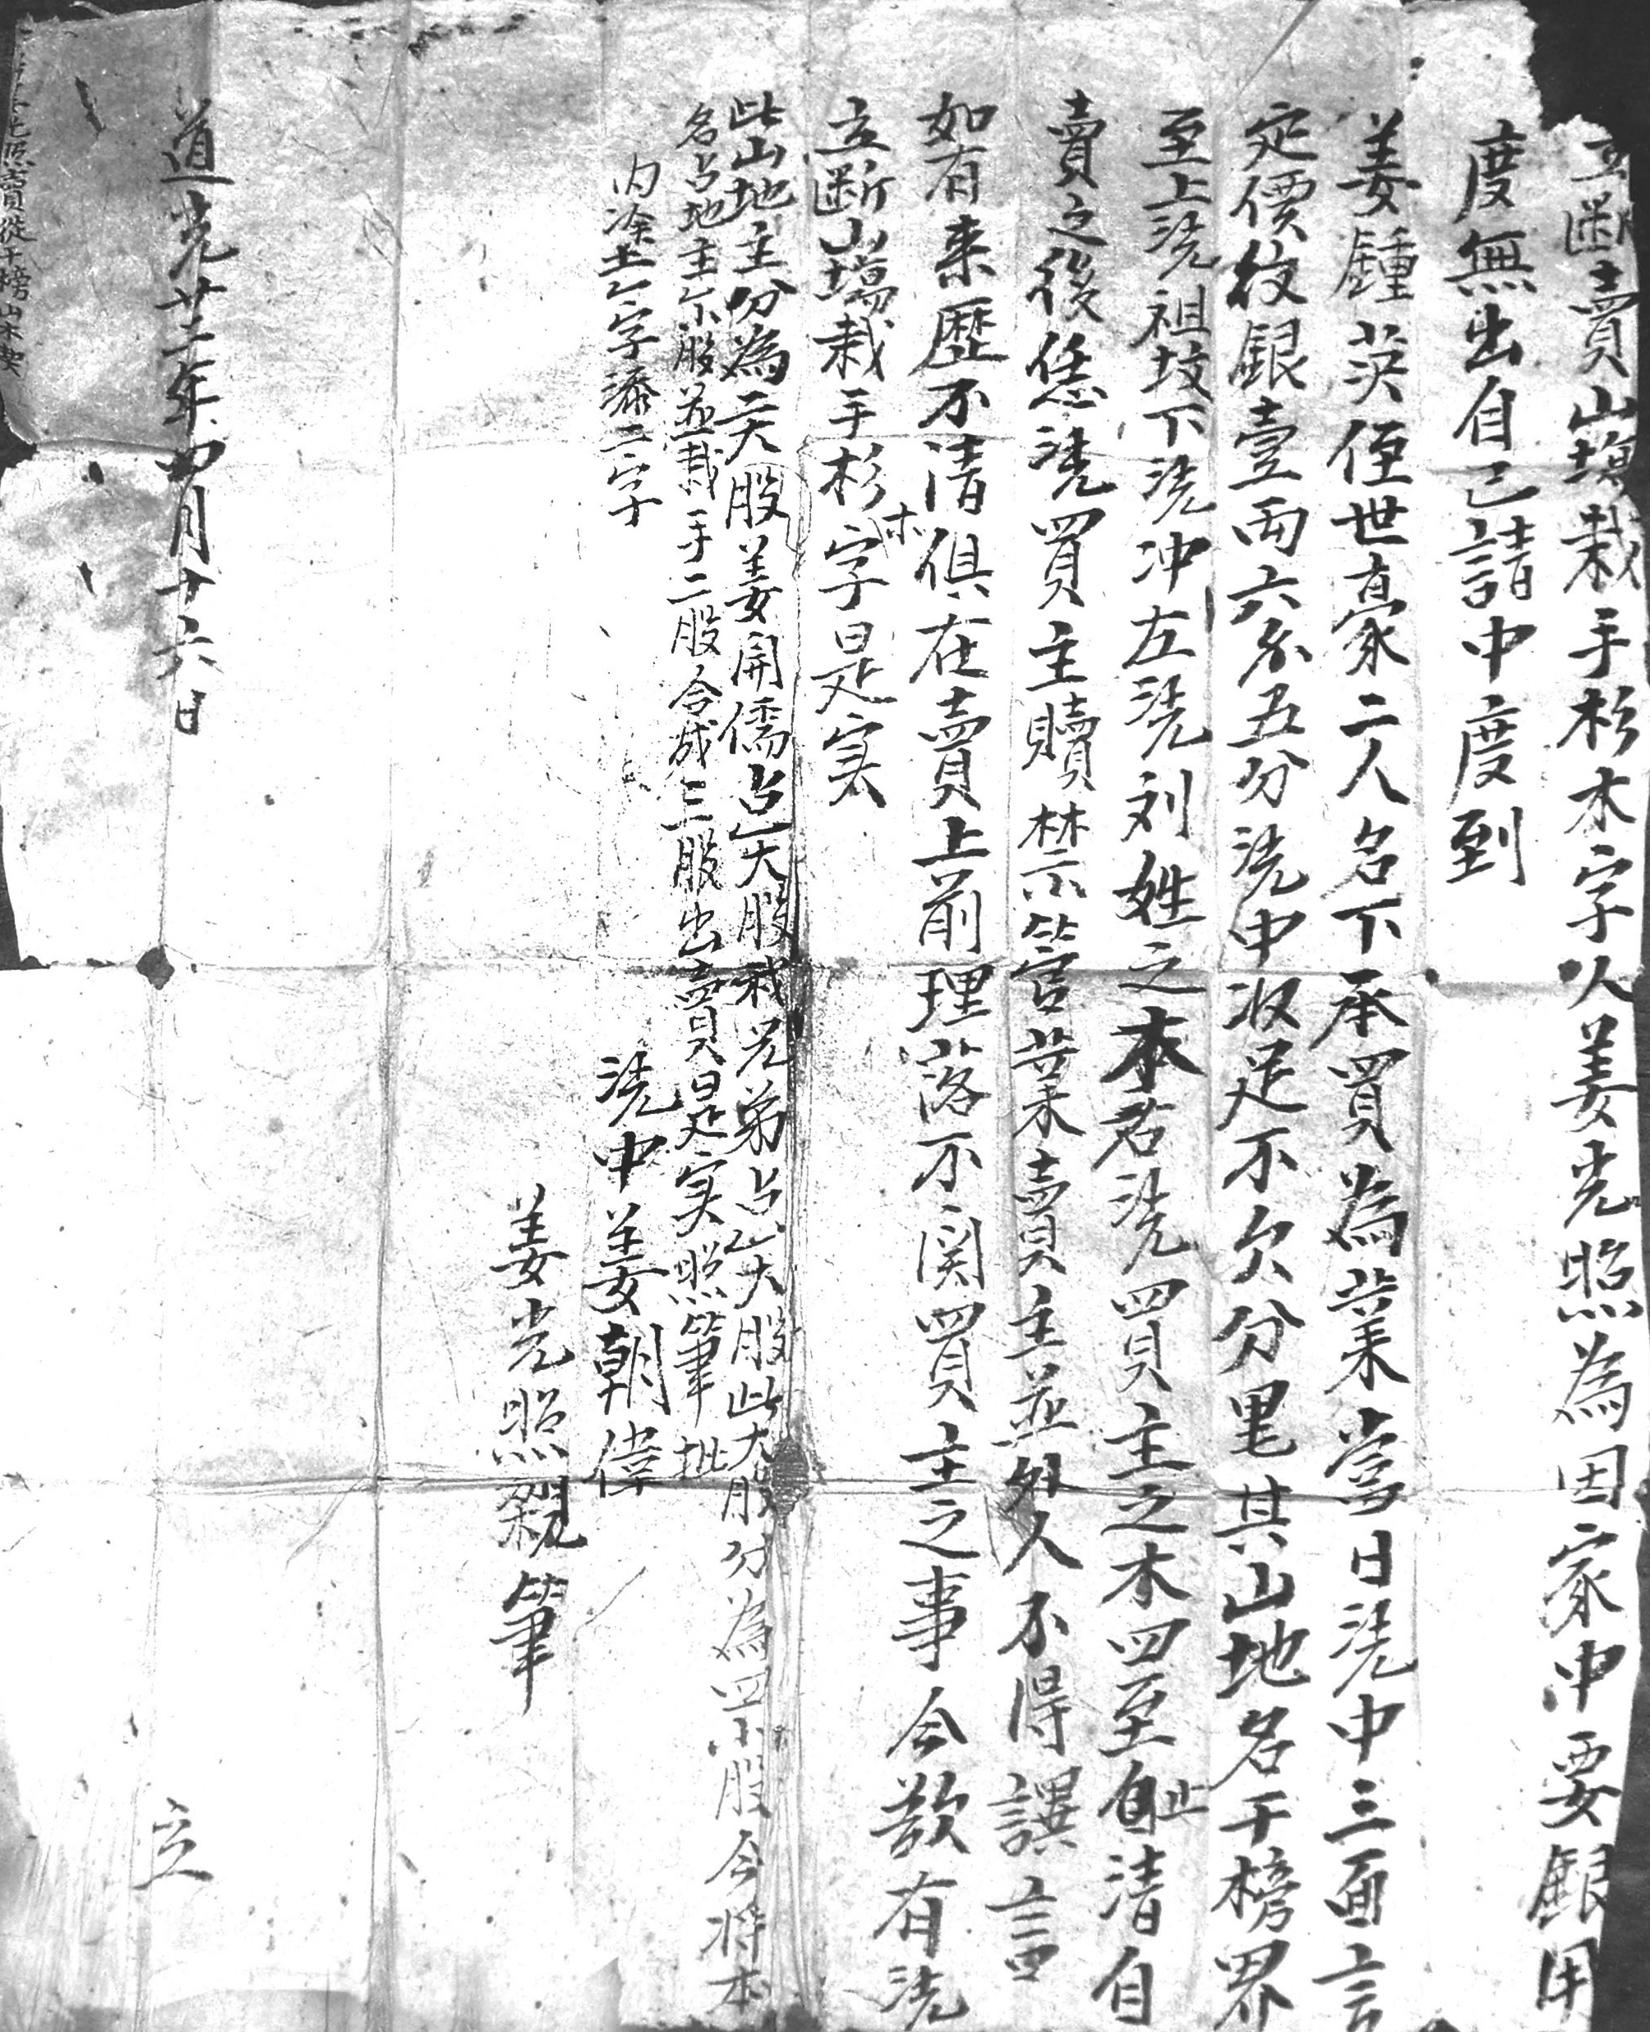 立斷賣山塲栽手杉木字人姜光照為因家中要銀用
度無出自己請中度到
姜鍾英侄世豪二人名下承買為業當日凴中三面言
定價紋銀壹両六分五分凴中収足不欠分厘其山地名干榜界
至上凴祖坟下凴冲左凴刘姓之木右凴買主之木四至自止清自
賣之後任凴買主贖禁管業賣主並外人不得誤言
如有来歷不清俱在賣上前理落不関買主之事今欲有凴
立斷山塲栽手杉木字是实
此山地主分為二大股姜開儒占乙大股我兄弟占乙大股此大股分為四小股今将本
名占地主小股並栽手二股合成三股出賣是实照筆批
内塗土乙字添二字
凴中姜朝偉
姜光照親筆
道光廿二年四月十六日
立
光照賣從干榜山木契